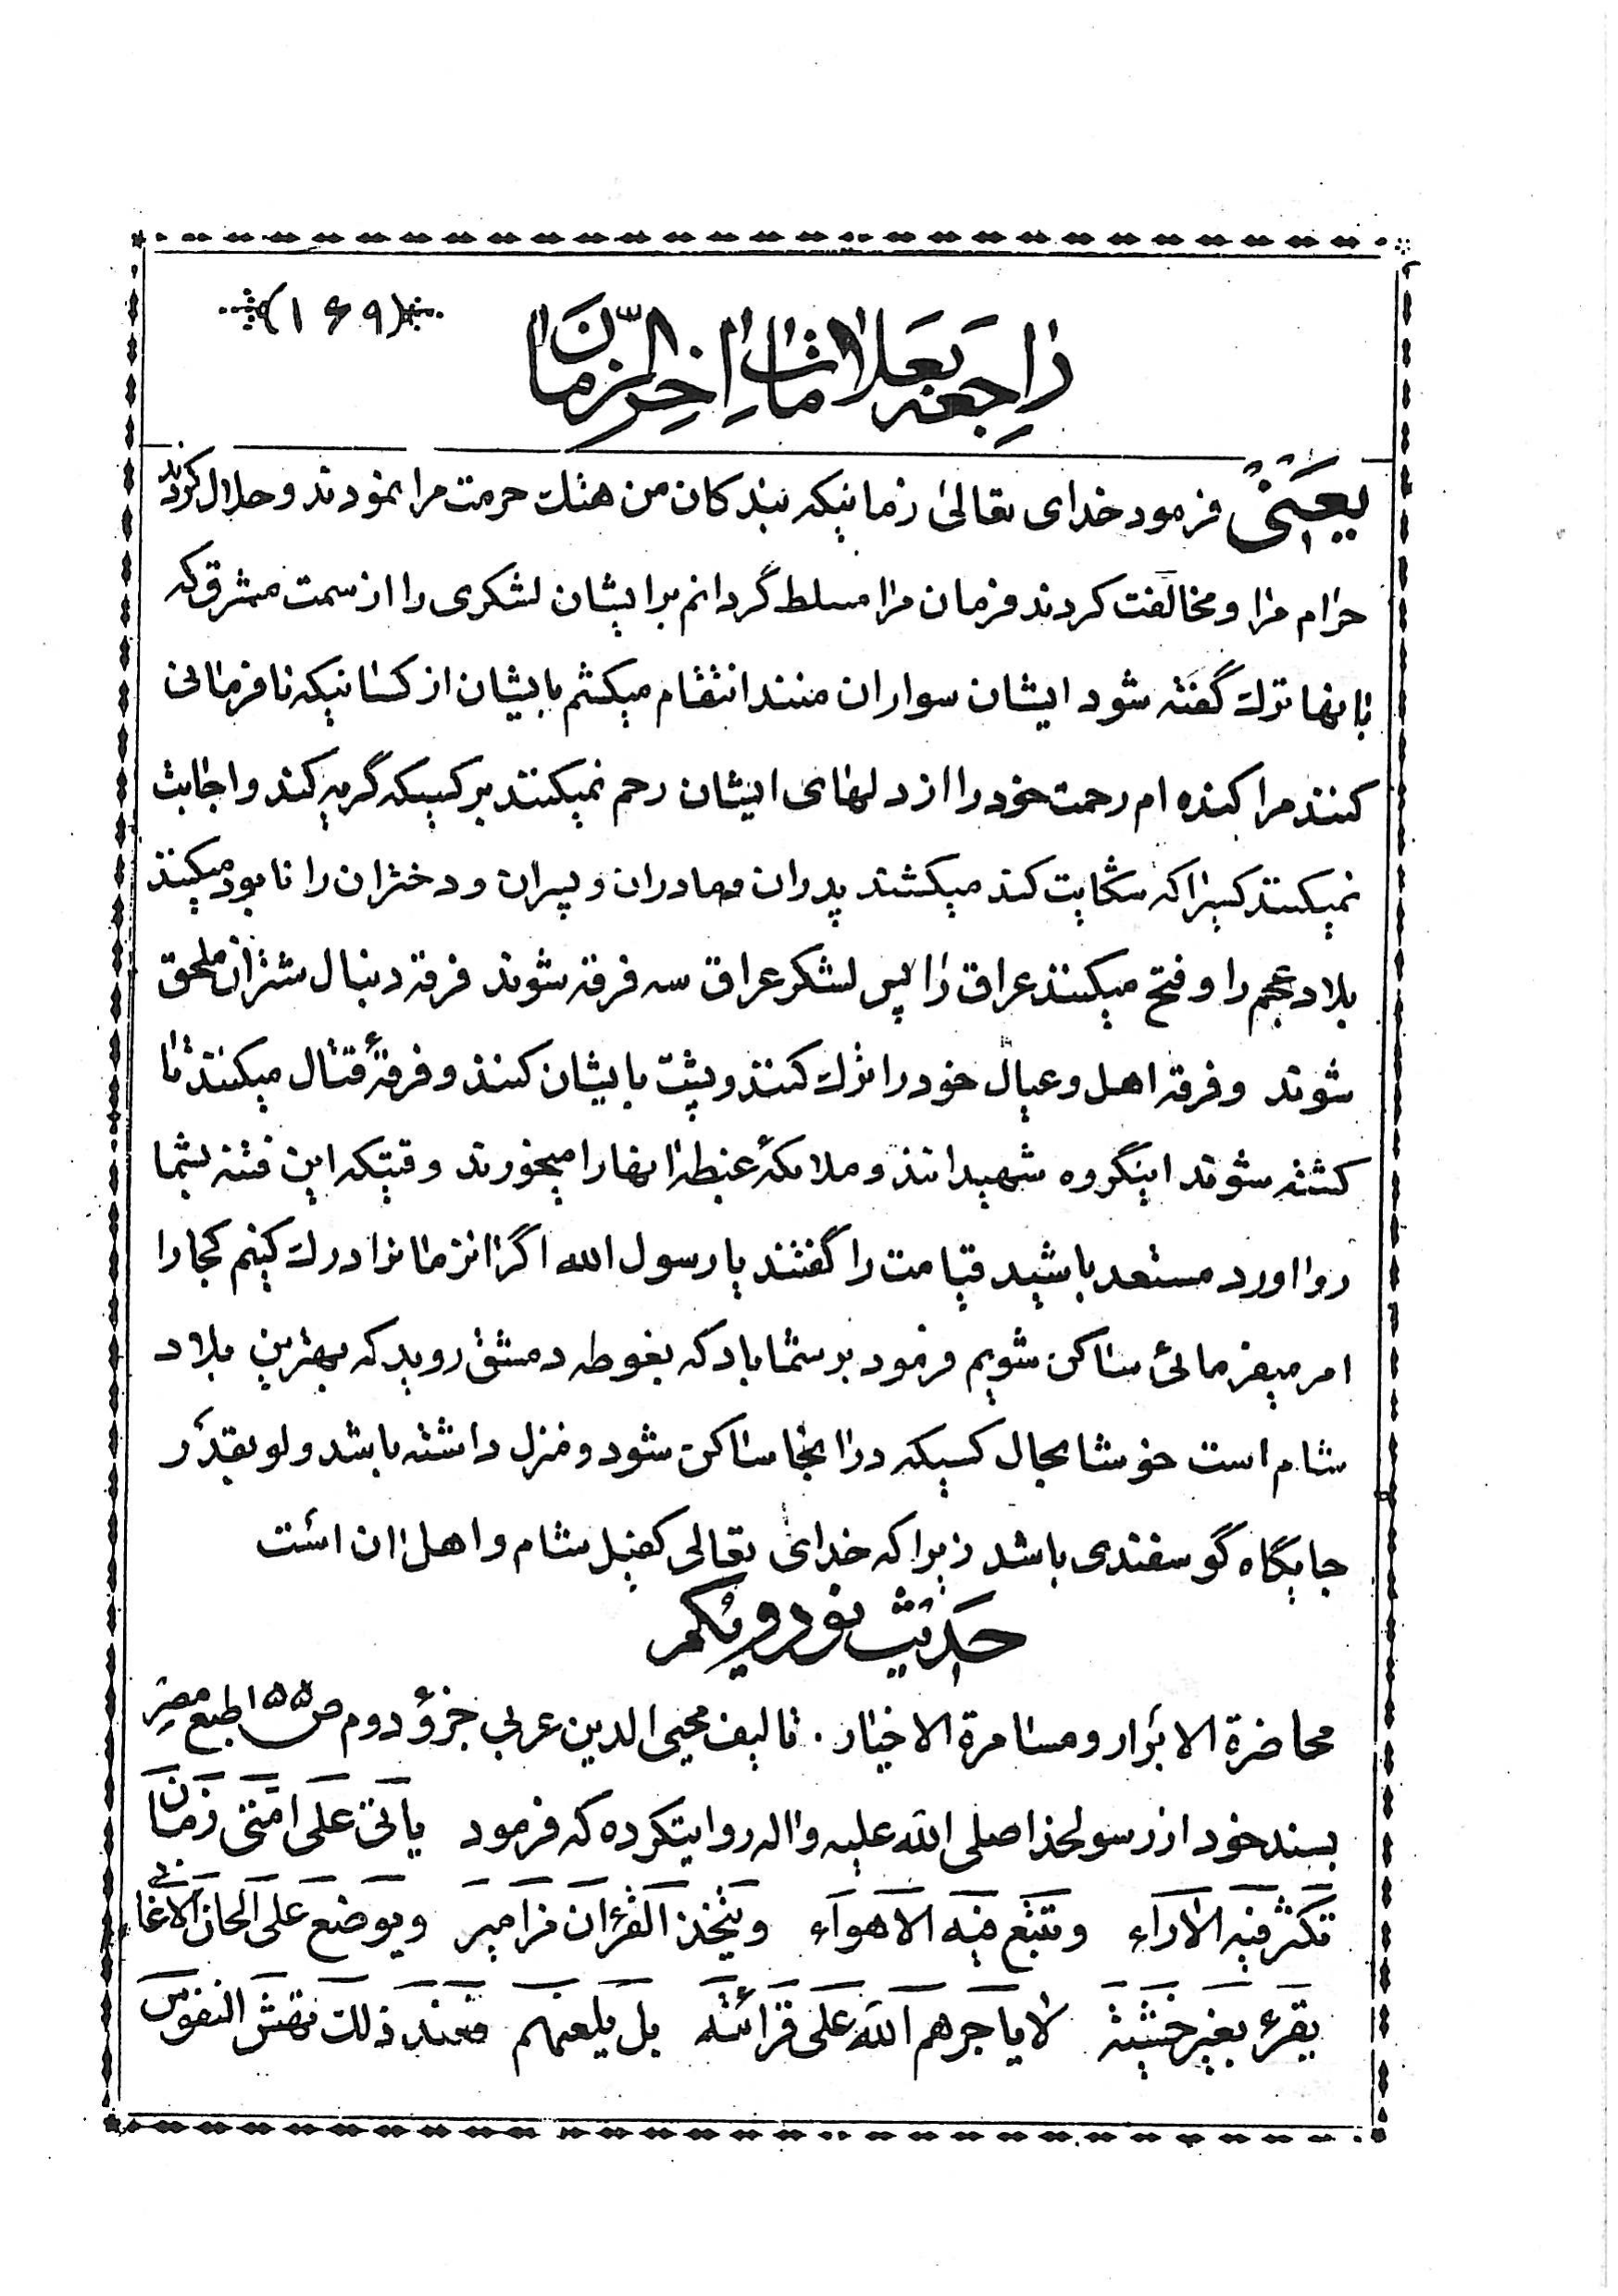 (۱۶۹)
راجعه بعلامات اخر الزمان
یعنی فرمود خدای تعالی زمانیکه بندکان من هتک حرمت مرا نمودند و حلال کردند
حرام مرا و مخالفت کردند فرمان مرا مسلط گردانم برایشان لشکری را از سمت مشرق که
بانها ترک گفته شود ایشان سواران منند انتقام میکشم بایشان از کسانیکه نافرمانی
کنند مرا کنده ام رحمت خود را از دلهای ایشان رحم نمیکنند بر کسیکه گریه کند و اجابت
نمیکنند کسیرا که شکایت کند میکشند پدران و مادران و پسران و دختران را نابود میکنند
بلاد عجم را و فتح میکنند عراق را پس لشکر عراق سه فرقه شوند فرقه دنبال شتران ملحق
شوند و فرقه اهل و عیال خود را ترک کنند و پشت بایشان کنند و فرقهٔ قتال میکنند تا
کشته شوند اینگروه شهیدانند و ملائکه غبطه انها را میخورند وقتیکه این فتنه بشما
رو اورد مستعد باشید قیامت را گفتند یا رسول الله اگر انزمانرا درک کنیم کجا را
امر میفرمائی ساکن شویم فرمود بر شما باد که بغوطه دمشق روید که بهترین بلاد
شام است خوشا بحال کسیکه در انجا ساکن شود و منزل داشته باشد و لو بقدر
جایگاه گوسفندی باشد زیرا که خدای تعالی کفیل شام و اهل ان است
حدیث نود و یکم
محاضرة الابرار و مسامرة الاخیار . تالیف محیی الدین عربی جزؤ دوم ص ۱۵۵ طبع مصر
بسند خود از رسولخدا صلی الله علیه و اله روایتکرده که فرمود یاتی علی امتی زمان
تکثر فیه الاراء و تتبع فیه الاهواء و یتخذ القرءان مزامیر و یوضع علی الحان الاغانی
یقرء بغیر خشیة لا یاجرهم الله علی قرائته بل یلعنهم فعند ذلک تهش النفوس